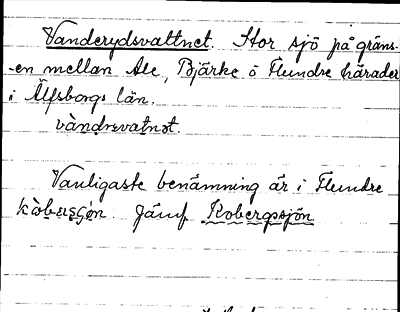 Vanderydsvattnet. Stor sjö på gräns-
-en mellan Ale, Bjärke o Flundre härader
i Älfsborgs län.
vàndrsvatnət.
Vanligaste benämning är i Flundre
Jämf Kobergssjön